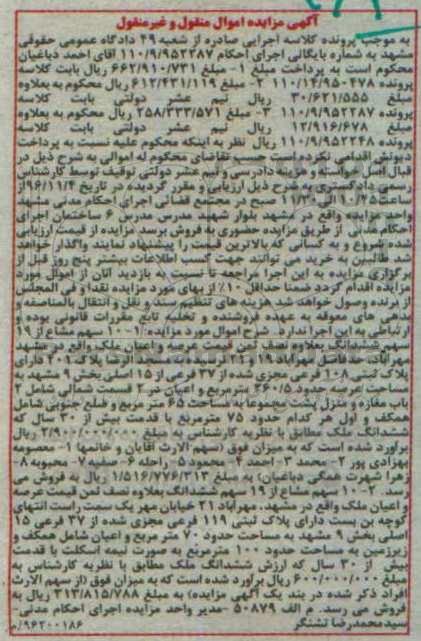 آگهی مزایده اموال منقول و غیرمنقول
به موجب پرونده کلاسه اجرایی صادره از شعبه ۴۹ دادگاه عمومی حقوقی
مشهد به شماره بایگانی اجرای احکام ۱۱۰/۹/۹۵۲۳۸۷ آقای احمد دباغیان
محکوم است به پرداخت مبلغ ۱- مبلغ ۶۶۲/۹۱۰/۷۳۱ ریال بابت کلاسه
پرونده ۱۱۰/۱۴/۹۵۰۴۷۸ ۲- مبلغ ۶۱۲/۴۳۱/۱۱۹ ریال محکوم به بعلاوه
مبلغ ۳۰/۶۲۱/۵۵۵ ریال نیم عشر دولتی بابت کلاسه
پرونده ۱۱۰/۹/۹۵۲۲۸۷ ۳- مبلغ ۲۵۸/۳۳۳/۵۷۱ ریال محکوم به بعلاوه
مبلغ ۱۲/۹۱۶/۶۷۸ ریال نیم عشر دولتی بابت کلاسه
پرونده ۱۱۰/۹/۹۵۲۲۴۸ ریال نظر به اینکه محکوم علیه نسبت به پرداخت
دیونش اقدامی نکرده است حسب تقاضای محکوم له اموالی به شرح ذیل در
قبال اصل خواسته و هزینه دادرسی و نیم عشر دولتی توقیف توسط کارشناس
رسمی دادگستری به شرح ذیل ارزیابی و مقرر گردیده در تاریخ ۹۶/۱۱/۴ از
ساعت ۱۰/۴۵ الی ۱۱/۳۰ صبح در مجتمع قضائی اجرای احکام مدنی مشهد
واحد مزایده واقع در مشهد بلوار شهید مدرس مدرس ۶ ساختمان اجرای
احکام مدنی از طریق مزایده حضوری به فروش برسد مزایده از قیمت ارزیابی
شده شروع و به کسانی که بالاترین قیمت را پیشنهاد نمایند واگذار خواهد
شد طالبین به خرید می توانند جهت کسب اطلاعات بیشتر پنج روز قبل از
برگزاری مزایده به این اجرا مراجعه تا نسبت به بازدید آنان از اموال مورد
مزایده اقدام گردد ضمنا حداقل ۱۰٪ از بهای مورد مزایده نقدا و فی المجلس
از برنده وصول خواهد شد هزینه های تنظیم سند و نقل و انتقال بالمناصفه و
بدهی های معوقه به عهده فروشنده و تخلیه تابع مقررات قانونی بوده و
ارتباطی به این اجرا ندارد. شرح اموال مورد مزایده: ۱- ۱۰ سهم مشاع از ۱۹
سهم ششدانگ بعلاوه نصف ثمن قیمت عرصه و اعیان ملک واقع در مشهد
مهرآباد حدفاصل مهرآباد ۱۹ و ۲۱ نرسیده به مسجد الرضا پلاک ۴۰۱ دارای
پلاک ثبتی ۱۰۸ فرعی مجزی شده از ۳۷ فرعی از ۱۵ اصلی بخش ۹ مشهد به
مساحت عرصه حدود ۲۶۰/۵ مترمربع و اعیان در ۲ قسمت شمالی شامل ۲
باب مغازه و منزل پشت مجموعا به مساحت ۶۵ متر مربع و ضلع جنوبی شامل
همکف و اول هر کدام حدود ۷۵ مترمربع با قدمت بیش از ۳۰ سال که
ششدانگ ملک مطابق با نظریه کارشناس به مبلغ ۲/۹۰۰/۰۰۰/۰۰۰ ریال
برآورد شده است که به میزان فوق (سهم الارث آقایان و خانمها ۱- معصومه
بهزادی پور ۲- محمد ۳- احمد ۴- محمود ۵- راحله ۶- صفیه ۷- محبوبه ۸-
زهرا شهرت همگی دباغیان) به مبلغ ۱/۵۱۶/۷۷۶/۳۱۳ ریال به فروش می
رسد. ۲- ۱۰ سهم مشاع از ۱۹ سهم ششدانگ بعلاوه نصف ثمن قیمت عرصه
و اعیان ملک واقع در مشهد، مهرآباد ۲۱ خیابان مهر یک سمت راست انتهای
کوچه بن بست دارای پلاک ثبتی ۱۱۹ فرعی مجزی شده از ۳۷ فرعی ۱۵
اصلی بخش ۹ مشهد به مساحت حدود ۷۰ متر مربع و اعیان شامل همکف و
زیرزمین به مساحت حدود ۱۰۰ مترمربع به صورت نیمه اسکلت با قدمت
بیش از ۳۰ سال که ارزش ششدانگ ملک مطابق با نظریه کارشناس به
مبلغ ۶۰۰/۰۰۰/۰۰۰ ریال برآورد شده است که به میزان فوق (از سهم الارث
افراد ذکر شده در بند یک آگهی مزایده) به مبلغ ۳۱۳/۸۱۵/۷۸۸ ریال به
فروش می رسد. م الف ۵۰۸۷۹ -مدیر واحد مزایده اجرای احکام مدنی-
سیدمحمدرضا تشنگر ۹۶۲۰۰۱۸۶/م